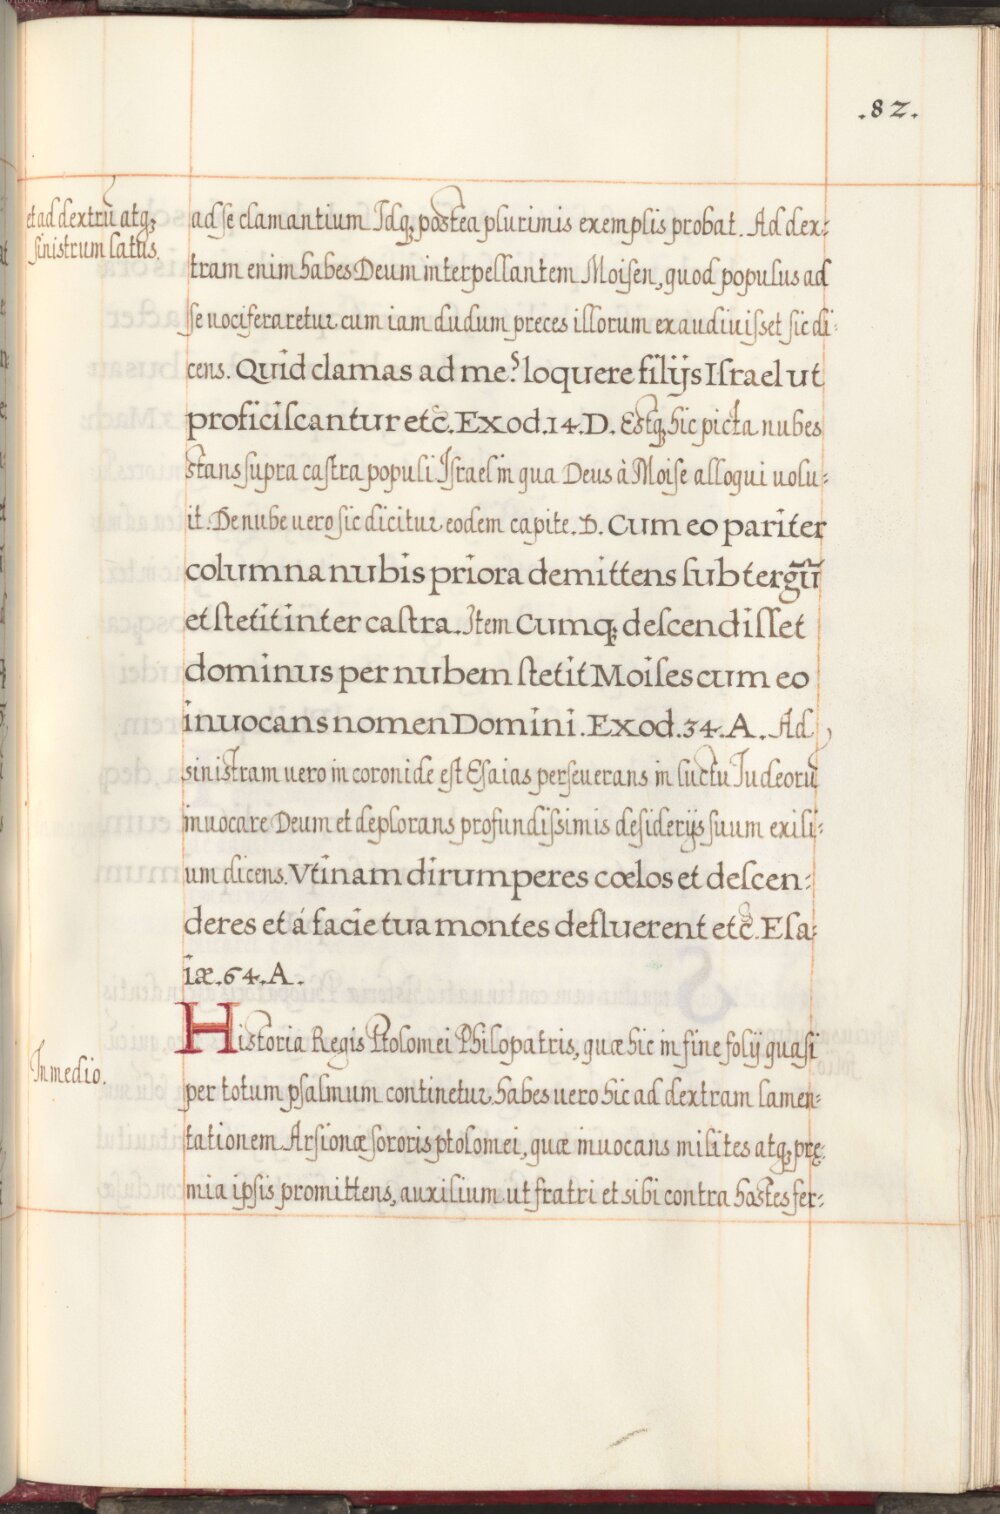 .82.
et ad dextrũ atq;
sinistrum latus.
ad se clamantium Idq; postea plurimis exemplis probat. Ad dex:
tram enim habes Deum interpellantem Moisen, quod populus ad
se vociferaretur cum iam dudum preces illorum exaudiuisset sic di:
cens. Quid clamas ad me? loquere filijs Israel ut
proficiscantur etc̃. Exod.14.D. Estq; hic picta nubes
stans supra castra populi Israel in qua Deus à Moise alloqui uolu:
it. De nube uero sic dicitur eodem capite. D. Cum eo pariter
columna nubis priora demittens sub tergũ
et stetit inter castra. Item Cumq; descendisset
dominus per nubem stetit Moises cum eo
inuocans nomen Domini. Exod.34.A. Ad
sinistram uero in coronide est Esaias perseuerans in luctu Iudeorũ
inuocare Deum et deplorans profundissimis desiderijs suum exili:
um dicens. Vtinam dirumperes cœlos et descen:
deres et á facie tua montes defluerent etc̃. Esa:
iæ.64.A.
In medio.
Historia Regis Ptolomei Philopatris, quæ hic in fine folij quasi
per totum psalmum continetur, habes uero hic ad dextram lamen:
tationem Arsionæ sororis ptolomei, quæ inuocans milites atq; prę:
mia ipsis promittens, auxilium ut fratri et sibi contra hostes fer: